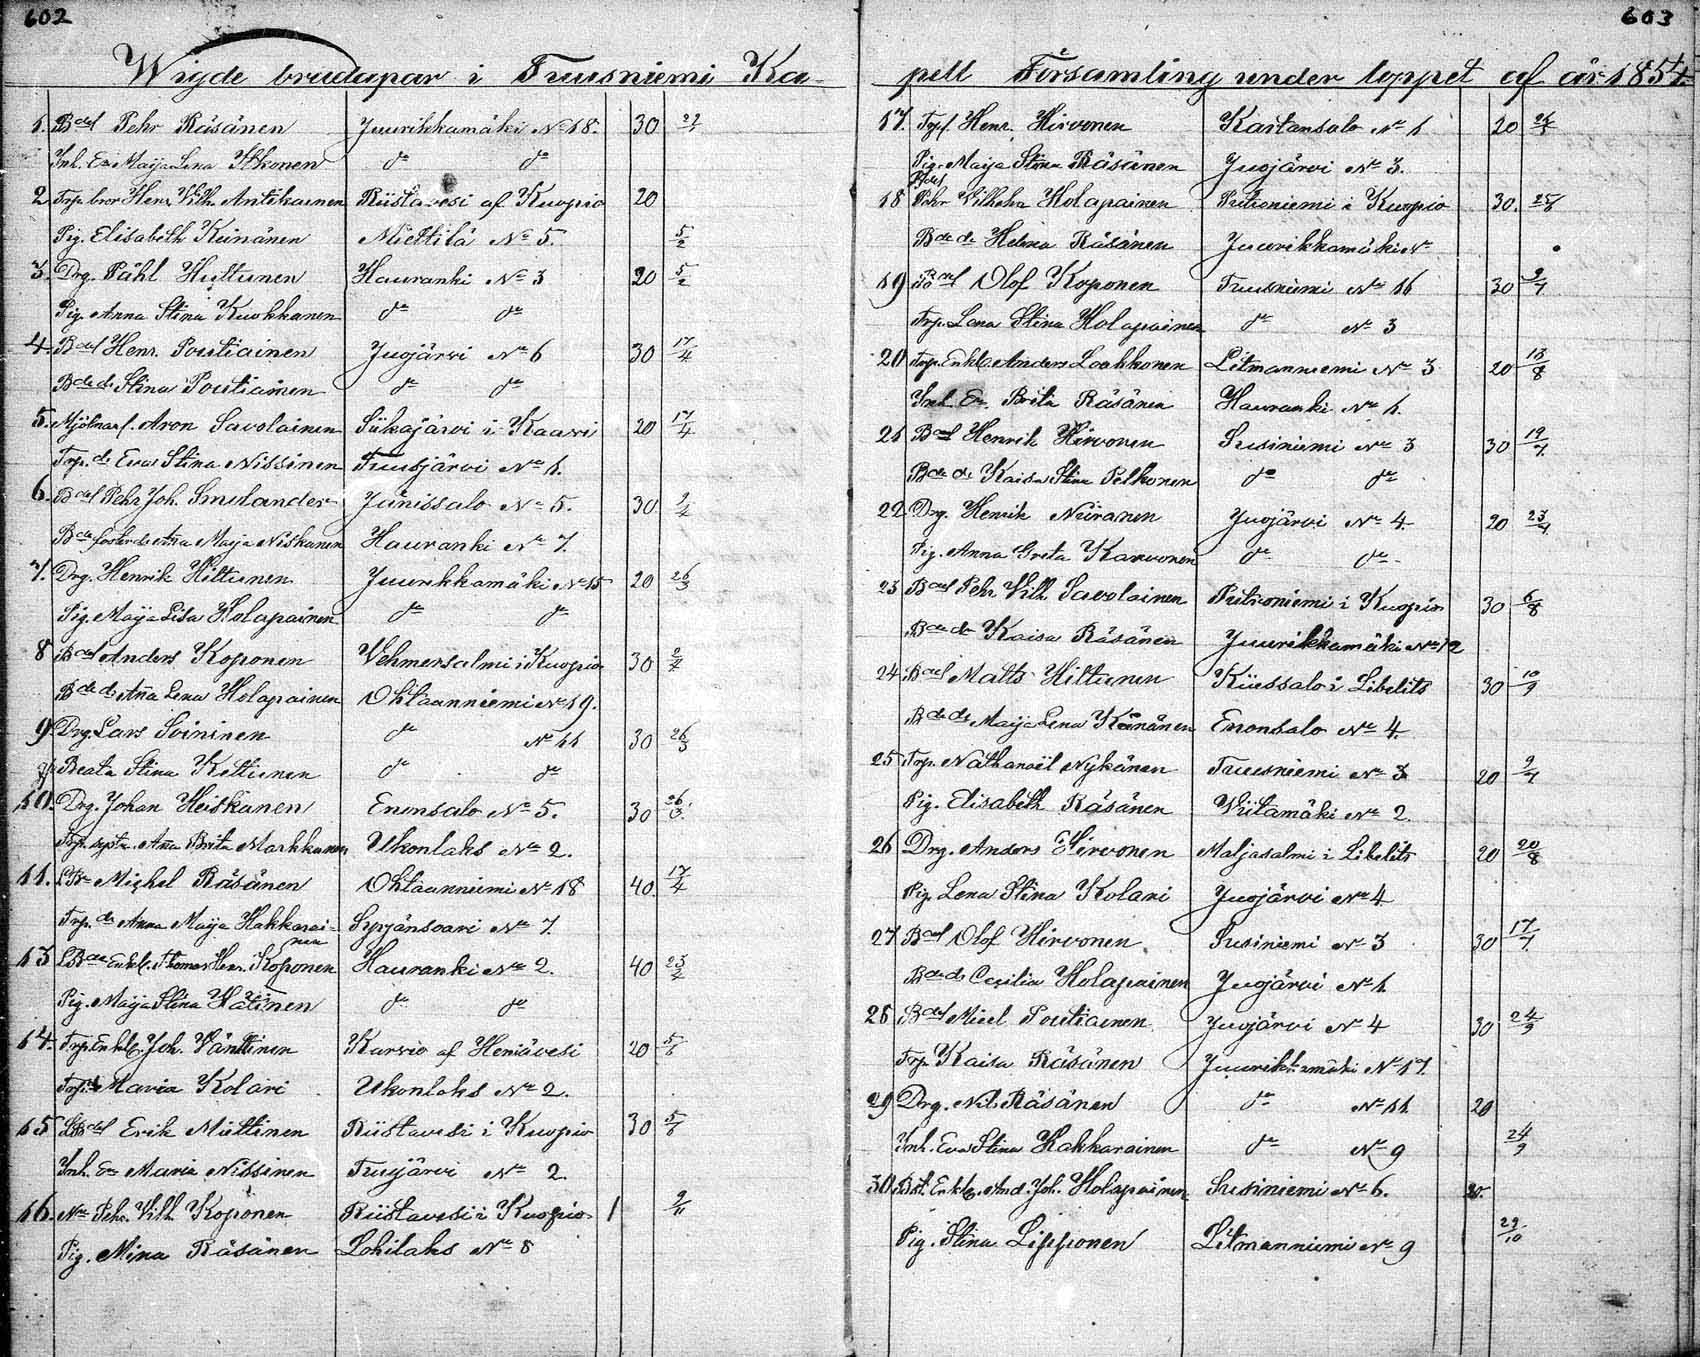 602
Wigde brudapar i Tuusniemi Ka-
1. Bdes Pehr Räsänen Juurikkamäki No 18. 30 22/1
Inh. Er Maija Lena Itkonen do do
2 Trp. bror Henr. Vilh. Antikainen Riistavesi af Kuopio 20
Pig. Elisabeth Keinänen Miettilä No 5. 5/2
3. Drg. Påhl Huttunen Hauranki No 3 20 5/2
Pig. Anna Stina Kuokkanen do do
4. Bdes Henr. Poutiainen Juojärvi No 6 30 17/4
Bde dr Stina Poutiainen do do
5. Mjölnars. Aron Savolainen Siikajärvi i Kaavi 20 17/4
Trp. dr Eva Stina Nissinen Tuusjärvi No 1.
6. Bdes Pehr Joh. Smelander Jänissalo No 5. 30 2/4
Bde foster dr Aña Maija Niskanen Hauranki No 7.
7. Drg. Henrik Hiltunen Juurikkamäki No 15 20 26/3
Pig. Maija Lisa Holapainen do do
8 Bdes Anders Koponen Vehmersalmi i Kuopio 30 2/4
Bde dr Aña Lena Holapainen Ohtaanniemi No 19.
9 Drg. Lars Soininen do No 11 30 26/3
Beata Stina Kettunen do do
10. Drg. Johan Heiskanen Enonsalo No 5. 30 26/3
Trp. syster Aña Brita Markkanen Ukonlaks No 2.
11. LBde Michel Räsänen Ohtaanniemi No 18 40. 17/4
Trp. dr Anna Maija Hakkarainen Syrjänsaari No 7.
13 LBde Enkl. Thomas Henr. Koponen Hauranki No 2. 40 23/4
Pig. Maija Stina Hätinen do do
14. Trp. Enkl. Joh. Vänttinen Karvio af Heniävesi 20 5/6
Trp. dr Maria Kolari Ukonlaks No 2.
15 LBdes Erik Miettinen Riistavesi i Kuopio 30 5/6
Inh. dr Maria Nissinen Tuusjärvi No 2.
16. Nde Pehr Vilh. Koponen Riistavesi i Kuopio 1 9/11
Pig. Mina Räsänen Lohilaks No 8
603
pell Församling under loppet af år 1854.
17. Trps. Henr. Hirvonen Kartansalo No 1 20 26/3
Pig. Maija Stina Räsänen Juojärvi No 3.
18 Bdes Pehr Vilhelm Holapainen Puitroniemi i Kuopio 30. 25/6
Bde dr Helena Räsänen Juurikkamäki No
19 Bdes Olof Koponen Tuusniemi No 11 30 2/7
Trp. Lena Stina Holapainen do No 3
20 Trp. Enkl. Anders Laakkonen Litmanniemi No 3 20 13/8
Inh. Er. Brita Räsänen Hauranki No 1.
21 Bdes Henrik Hirvonen Susiniemi No 3 30 19/7
Bde dr Kaisa Stina Pelkonen do do
22 Drg. Henrik Niiranen Juojärvi No 4. 20 23/4
Pig. Anna Greta Karvonen do do
23 Bdes Pehr Vilh. Savolainen Puitroniemi i Kuopio 30 6/8
Bde dr Kaisa Räsänen Juurikkamäki No 12
24 Bdes Matts Hiltunen Kiiessalo i Libelits 30 10/9
Bde dr Maija Lena Keinänen Enonsalo No 4.
25 Trp. Nathanaël Nykänen Tuusniemi No 3 20 2/7
Pig. Elisabeth Räsänen Viitamäki No 2.
26 Drg. Anders Hirvonen Maljasalmi i Libelits 20 20/8
Pig. Lena Stina Kolari Juojärvi No 4
27 Bdes Olof Hirvonen Susiniemi No 3 30 17/7
Bde dr Cecilia Holapainen Juojärvi No 1
28 Bdes Micel Poutiainen Juojärvi No 4 30 24/9
Trp. Kaisa Räsänen Juurikkamäki No 17.
29 Drg. Nils Räsänen do No 11 20
Inh. Eva Stina Hakkarainen do No 9 24/9
30 Bst. Enkl. And. Joh. Holapainen Susiniemi No 6. 20.
Pig. Stina Lipponen Litmanniemi No 9 29/10